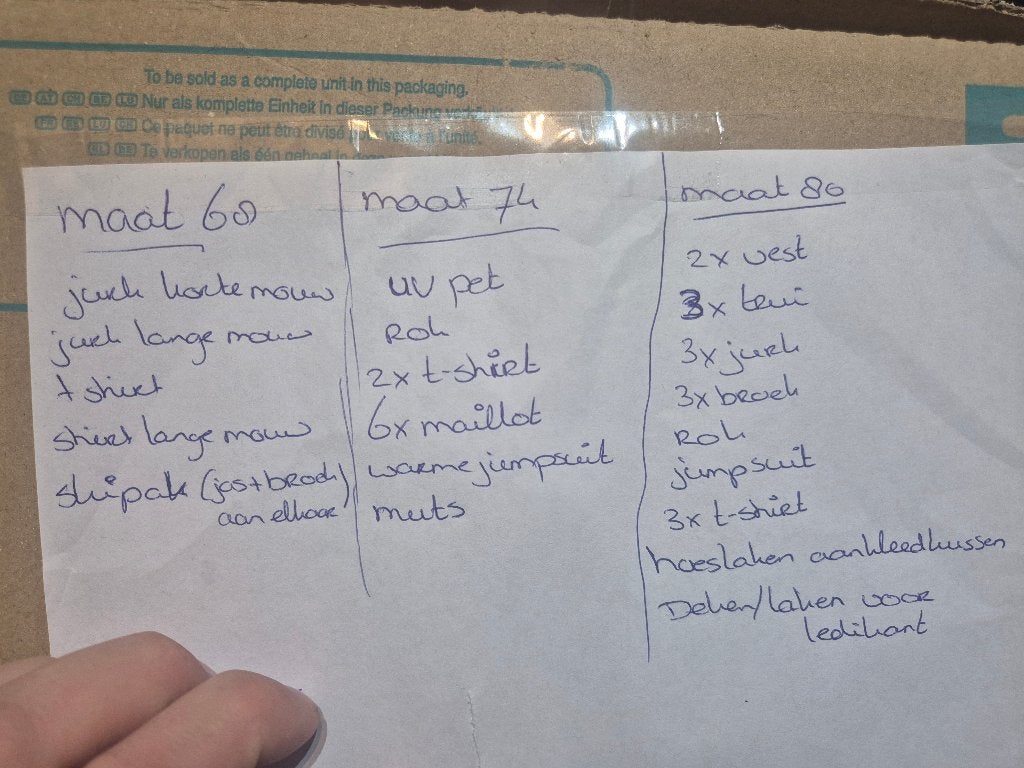 To be sold as a complete unit in this packaging.
Nur als komplette Einheit in dieser Packung
Ce paquet ne peut être divisé à l'unité.
Te verkopen als één geheel in
maat 68
jurk korte mouw
jurk lange mouw
t shirt
shirt lange mouw
skipak (jas+broek)
aan elkaar
maat 74
UV pet
Rok
2x t-shirt
6x maillot
warme jumpsuit
muts
maat 80
2x vest
3x trui
3x jurk
3x broek
Rok
jumpsuit
3x t-shirt
hoeslaken aankleedkussen
Deken/laken voor
ledikant